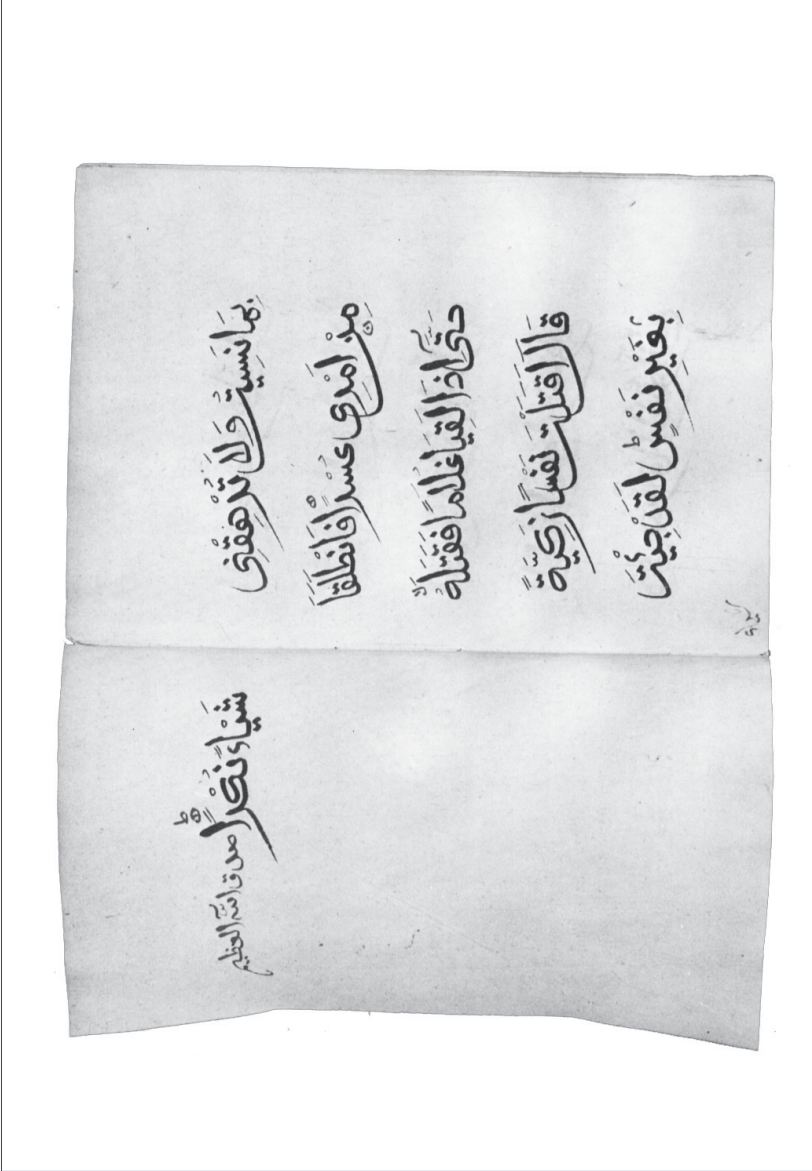 بِمَا نَسِيتُ وَلَا تُرْهِقْنِى
مِنْ اَمْرِى عُسْرًا فَانْطَلَقَا
حَتَّى اِذَا لَقِيَا غُلٰمًا فَقَتَلَهُ
قَالَ اَقَتَلْتَ نَفْسًا زَكِيَّةً
بِغَيْرِ نَفْسٍ ط لَقَدْ جِئْتَ
شَيْاءً نُكْرًا ط
صدق الله العظيم